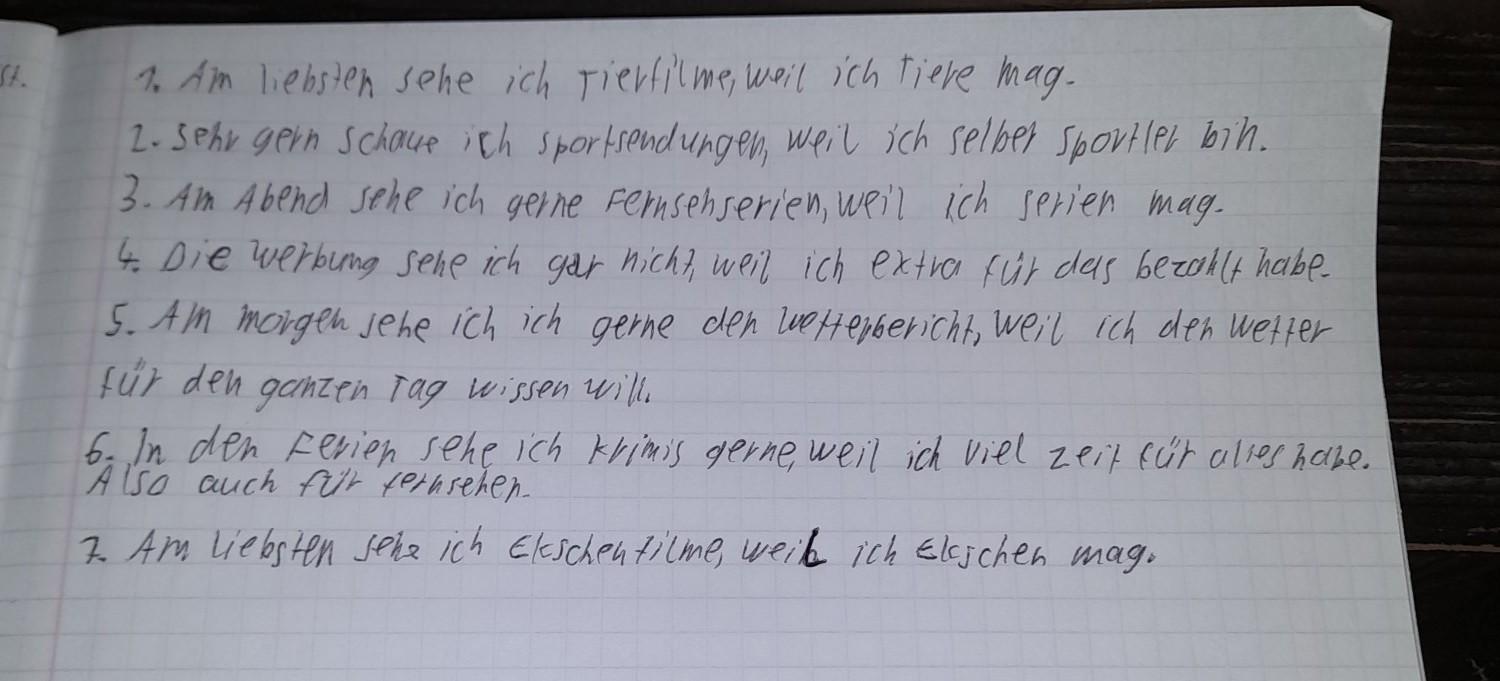 st.
1. Am liebsten sehe ich Tierfilme, weil ich Tiere mag.
2. Sehr gern schaue ich sportsendungen, weil ich selber sportler bin.
3. Am Abend sehe ich gerne Fernsehserien, weil ich serien mag.
4. Die werbung sehe ich gar nicht, weil ich extra für das bezahlt habe.
5. Am morgen sehe ich ich gerne den wetterbericht, weil ich den wetter
für den ganzen Tag wissen will.
6. In den Ferien sehe ich krimis gerne, weil ich viel zeit für alles habe.
Also auch für fernsehen.
7. Am liebsten sehe ich Ekschenfilme, weil ich Ekschen mag.